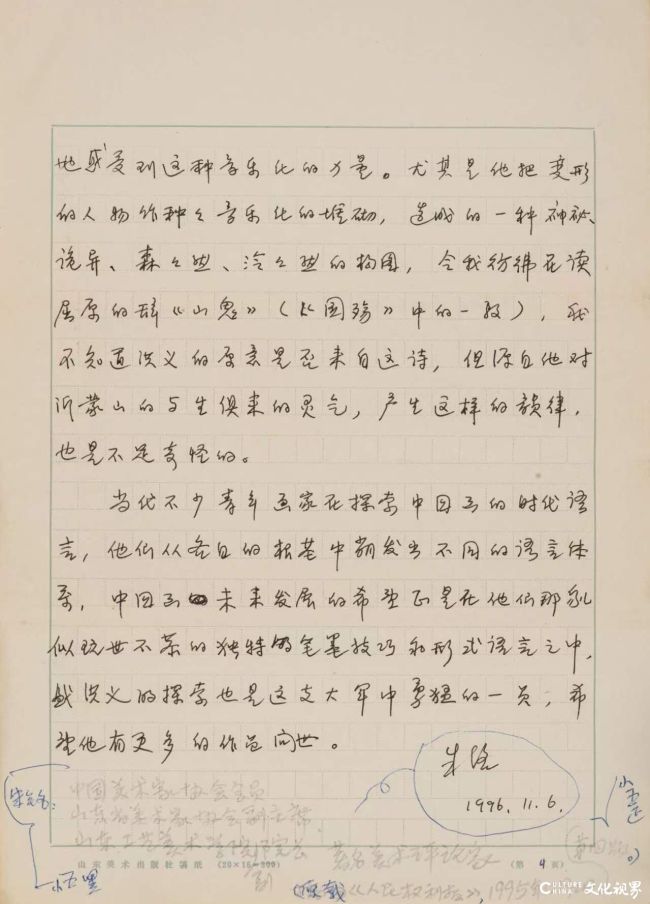 地感受到这种音乐化的力量。尤其是他把变形
的人物作种々音乐化的堆砌，造成的一种神秘、
诡异、森々然、冷々然的构图，令我彷彿在读
屈原的辞《山鬼》（《国殇》中的一段），我
不知道洪义的原意是否来自这诗，但源自他对
沂蒙山的与生俱来的灵气，产生这样的韵律，
也是不足奇怪的。
当代不少青年画家在探索中国画的时代语
言，他们从各自的根基中萌发出不同的语言体
系，中国画未来发展的希望正是在他们那貌
似玩世不恭的独特的笔墨技巧和形式语言之中，
战洪义的探索也是这支大军中勇猛的一员，希
望他有更多的作品问世。
朱铭
1996.11.6.
朱铭：
中国美术家协会会员
山东省美术家协会副主席
山东工艺美术学院院长
副
著名美术评论家
山东美术出版社稿纸 (20×15=300) (第 4 页)
小五黑
原载《人民权利报》，1995年
CULTURE CHINA 文化视界